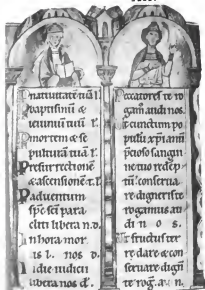 P nativitatē tuā l'.
P baptismū &
ieiuniū tuū l'.
P mortem & se
pulturā tuā l'.
P resurrectionē
& ascensionē t. l'.
P adventum
sp̄c sc̄i para
cliti libera n. d.
In hora mor
tis l. nos d.
In die iudicii
libera nos d'.
Peccatores te ro
gam' audi nos.
cunctum po
pulū xp̄ianū
p̄cioso sangui
ne tuo redēp
tū conserua
re digneris te
rogamus au
di nos.
Ut fructus ter
re dare & con
seruare digñ
te rog. a. n.